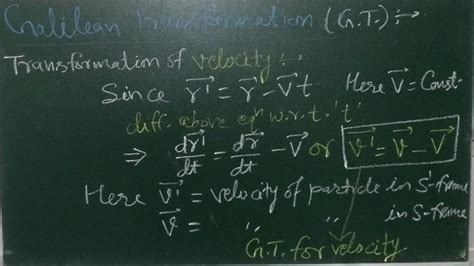 Galilean Transformation (G.T.):→
Transformation of velocity:→
Since r⃗' = r⃗ - V⃗t Here V⃗ = Const.
diff. above eqⁿ w.r.t. 't'
⇒ dr⃗'/dt = dr⃗/dt - V⃗ or v⃗' = v⃗ - V⃗
Here v⃗' = velocity of particle in S'-frame
v⃗ = " " in S-frame
G.T. for velocity.